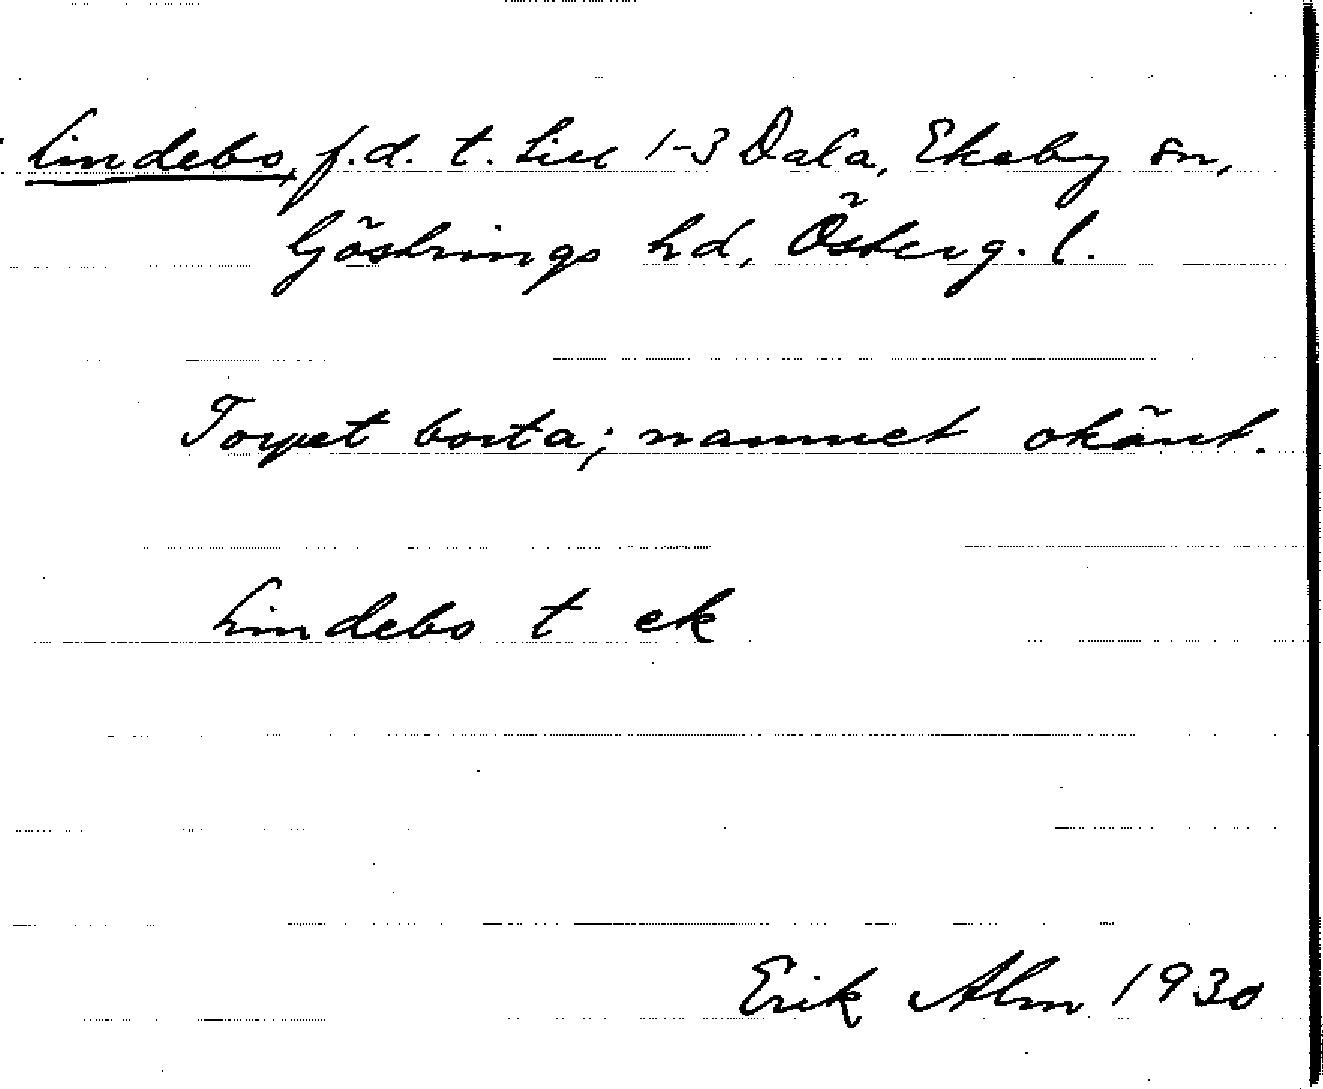 Lindebo, f.d. t. Lill 1-3 Dala, Ekeby sn,
Göstrings hd, Österg. l.
Torpet borta; namnet okänt.
Lindebo t ek
Erik Alm 1930